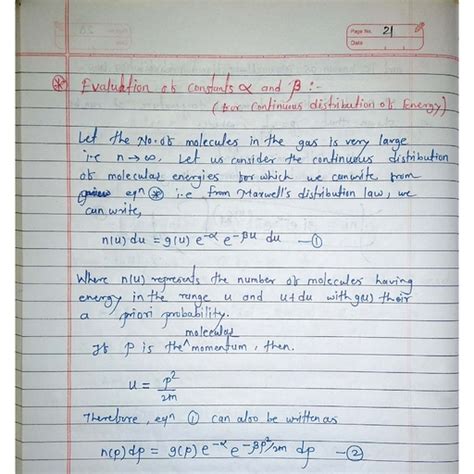 Page No. 21
Date
* Evaluation of constants α and β :-
(for continuous distribution of Energy)
Let the No. of molecules in the gas is very large
i.e n→∞. Let us consider the continuous distribution
of molecular energies for which we can write from
eqn * i.e from Maxwell's distribution law, we
can write,
n(u) du = g(u) e^-α e^-βu du —①
Where n(u) represents the number of molecules having
energy in the range u and u+du with g(u) their
a priori probability.
molecular
If p is the ^ momentum, then.
u = p²/2m
Therefore, eqn ① can also be written as
n(p) dp = g(p) e^-α e^-βp²/2m dp —②